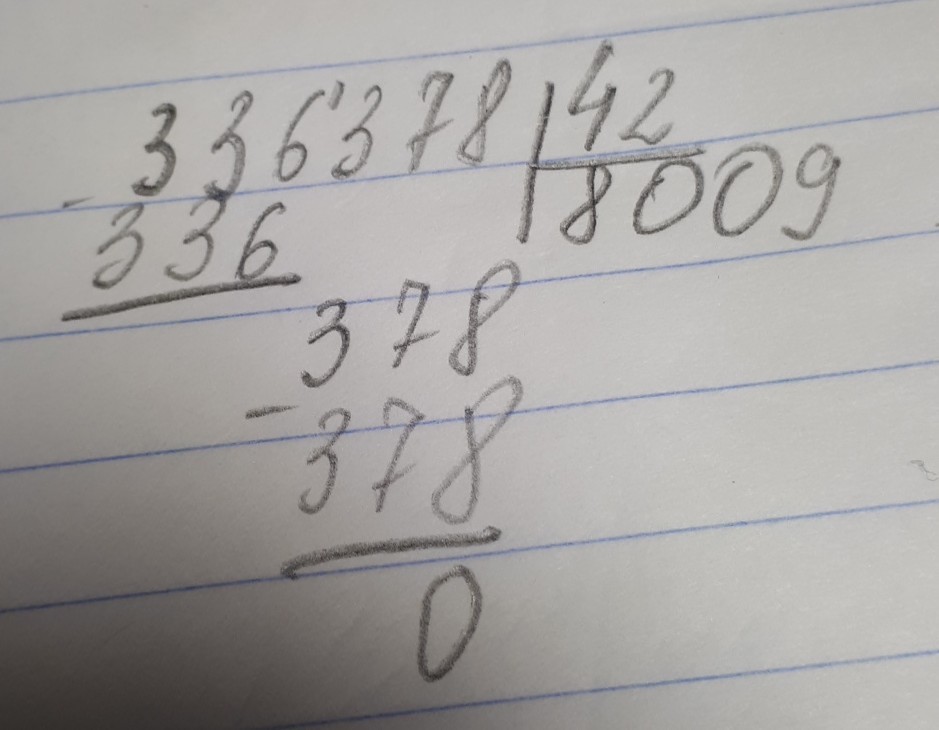 336'378 42
- 336 8009
378
- 378
0